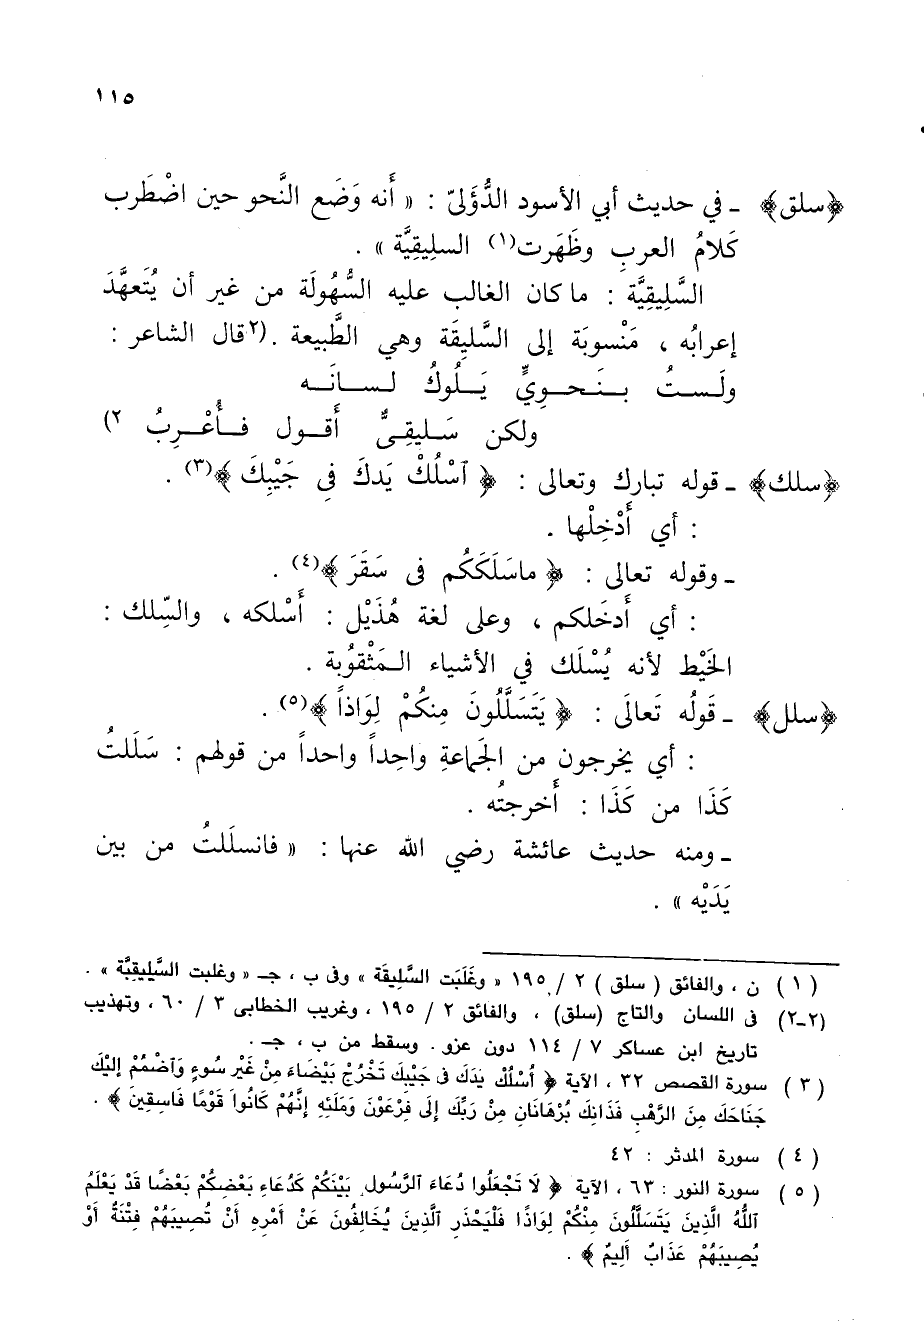 ١١٥
﴿سلق﴾ ـ في حديث أبي الأسود الدُّؤَليّ : « أَنه وَضَع النَّحو حين اضْطَرب
كَلامُ العربِ وظَهَرت(١) السلِيقِيَّة » .
السَّلِيقِيَّة : ما كان الغالب عليه السُّهُولَة من غير أن يُتَعهَّدَ
إعرابُه ، مَنْسوبَة إلى السَّلِيقَة وهي الطَّبيعة .(٢قال الشاعر :
ولَستُ بنَحويٍّ يَلُوكُ لسانَه
ولكن سَليقىٌّ أَقول فأُعْرِبُ ٢)
﴿سلك﴾ ـ قوله تبارك وتعالى : ﴿ ٱسْلُكْ يَدكَ فِى جَيْبِكَ ﴾(٣) .
: أي أَدْخِلْها .
ـ وقوله تعالى : ﴿ ماسَلَكَكُم فى سَقَرَ ﴾(٤) .
: أي أدخَلكم ، وعلى لغة هُذَيْل : أَسْلكه ، والسِّلك :
الخَيْط لأنه يُسْلَك في الأشياء المَثْقوُبة .
﴿سلل﴾ ـ قَولُه تَعالَى : ﴿ يَتَسَلَّلُونَ مِنكُمْ لِوَاذاً ﴾(٥) .
: أي يخرجون من الجَماعةِ واحِداً واحداً من قولهم : سَلَلتُ
كَذَا من كَذَا : أَخرجتُه .
ـ ومنه حديث عائشة رضي الله عنها : « فانسلَلتُ من بين
يَدَيْه » .
(١) ن ، والفائق ( سلق ) ٢ / ١٩٥ « وغَلَبَت السَّلِيقَة » وفى ب ، جـ « وغلبت السَّلِيقِيَّة » .
(٢-٢) فى اللسان والتاج (سلق) ، والفائق ٢ / ١٩٥ ، وغريب الخطابى ٣ / ٦٠ ، وتهذيب
تاريخ ابن عساكر ٧ / ١١٤ دون عزو . وسقط من ب ، جـ .
(٣) سورة القصص ٣٢ ، الآية ﴿ اُسْلُكْ يدَكَ فى جَيْبِكَ تَخْرُجْ بَيْضَاءَ مِنْ غَيْرِ سُوءٍ وَٱضْمُمْ إِلَيْكَ
جَنَاحَكَ مِنَ الرَّهْبِ فَذَانِكَ بُرْهَانَانِ مِنْ رَبِّكَ إِلَى فِرْعَوْنَ وَمَلَئِهِ إِنَّهُمْ كَانُوا قَوْمًا فَاسِقِينَ ﴾ .
(٤) سورة المدثر : ٤٢
(٥) سورة النور : ٦٣ ، الآية ﴿ لَا تَجْعَلُوا دُعَاءَ ٱلرَّسُولِ بَيْنَكُمْ كَدُعَاءِ بَعْضِكُمْ بَعْضًا قَدْ يَعْلَمُ
ٱللَّهُ الَّذِينَ يَتَسَلَّلُونَ مِنْكُمْ لِوَاذًا فَلْيَحْذَرِ ٱلَّذِينَ يُخَالِفُونَ عَنْ أَمْرِهِ أَنْ تُصِيبَهُمْ فِتْنَةٌ أَوْ
يُصِيبَهُمْ عَذَابٌ أَلِيمٌ ﴾ .